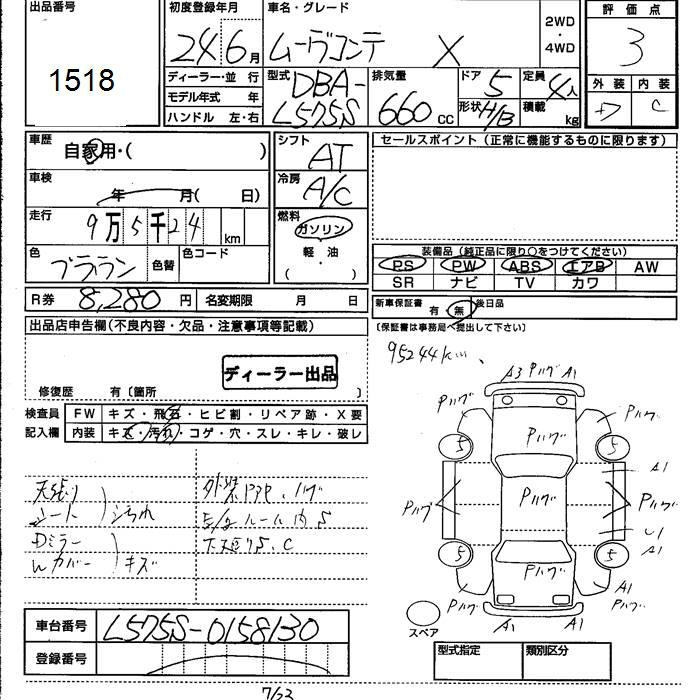 出品番号
1518
初度登録年月
24 6月
車名・グレード
ムーヴコンテ X
2WD
・
4WD
評価点
3
外装 内装
+7 C
ディーラー・並行
モデル年式 年
ハンドル 左・右
型式
DBA-
L575S
排気量
660 cc
ドア 5
形状 H/B
定員 4人
積載 kg
車歴
自家用・( )
車検
年 月( 日)
走行
9万5千24 km
色
ブラウン
色替
色コード
シフト
AT
冷房
A/C
燃料
ガソリン
軽・油
( ・ )
セールスポイント(正常に機能するものに限ります)
装備品(純正品に限り○をつけてください)
PS PW ABS エアB AW
SR ナビ TV カワ
R券 8,280 円 名変期限 月 日
新車保証書 有・無 後日品
〔保証書は事務局へ提出して下さい〕
出品店申告欄(不良内容・欠品・注意事項等記載)
ディーラー出品
修復歴 有〔箇所 〕
95244km、
検査員
記入欄
FW キズ・飛石・ヒビ割・リペア跡・X要
内装 キズ・汚れ・コゲ・穴・スレ・キレ・破レ
天張り
シート
シミ汚れ
Dミラー
Wカバー
キズ
外装PPP、ハゲ
ルーム内S
下廻りS、C
A3 Pハゲ A1
Pハゲ Pハゲ Pハゲ
5 5
A1
Pハゲ Pハゲ Pハゲ
A1
5 5
Pハゲ
Pハゲ A1
Pハゲ
A1 A1
スペア
車台番号 L575S-0158130
登録番号
型式指定 類別区分
7/63